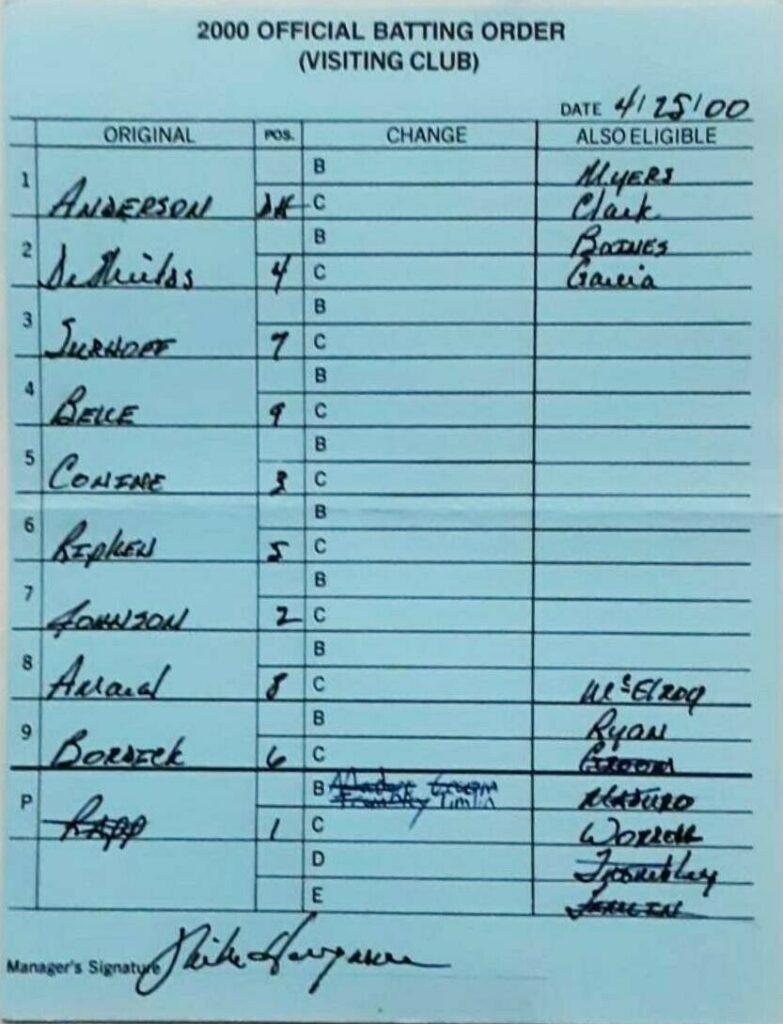 2000 OFFICIAL BATTING ORDER
(VISITING CLUB)
DATE 4/25/00
ORIGINAL POS. CHANGE ALSO ELIGIBLE
1 ANDERSON DH B C
MYERS
Clark
2 DeShields 4 B C
BAINES
Garcia
3 SURHOFF 7 B C
4 BELLE 9 B C
5 CONINE 3 B C
6 RIPKEN 5 B C
7 JOHNSON 2 B C
8 Amaral 8 B C
McElroy
9 BORDICK 6 B C
Ryan
GROOM
P RAPP 1 B Maduro Groom
Trombley Timlin
MADURO
C WORRELL
D Trombley
E TIMLIN
Manager's Signature Mike Hargrove